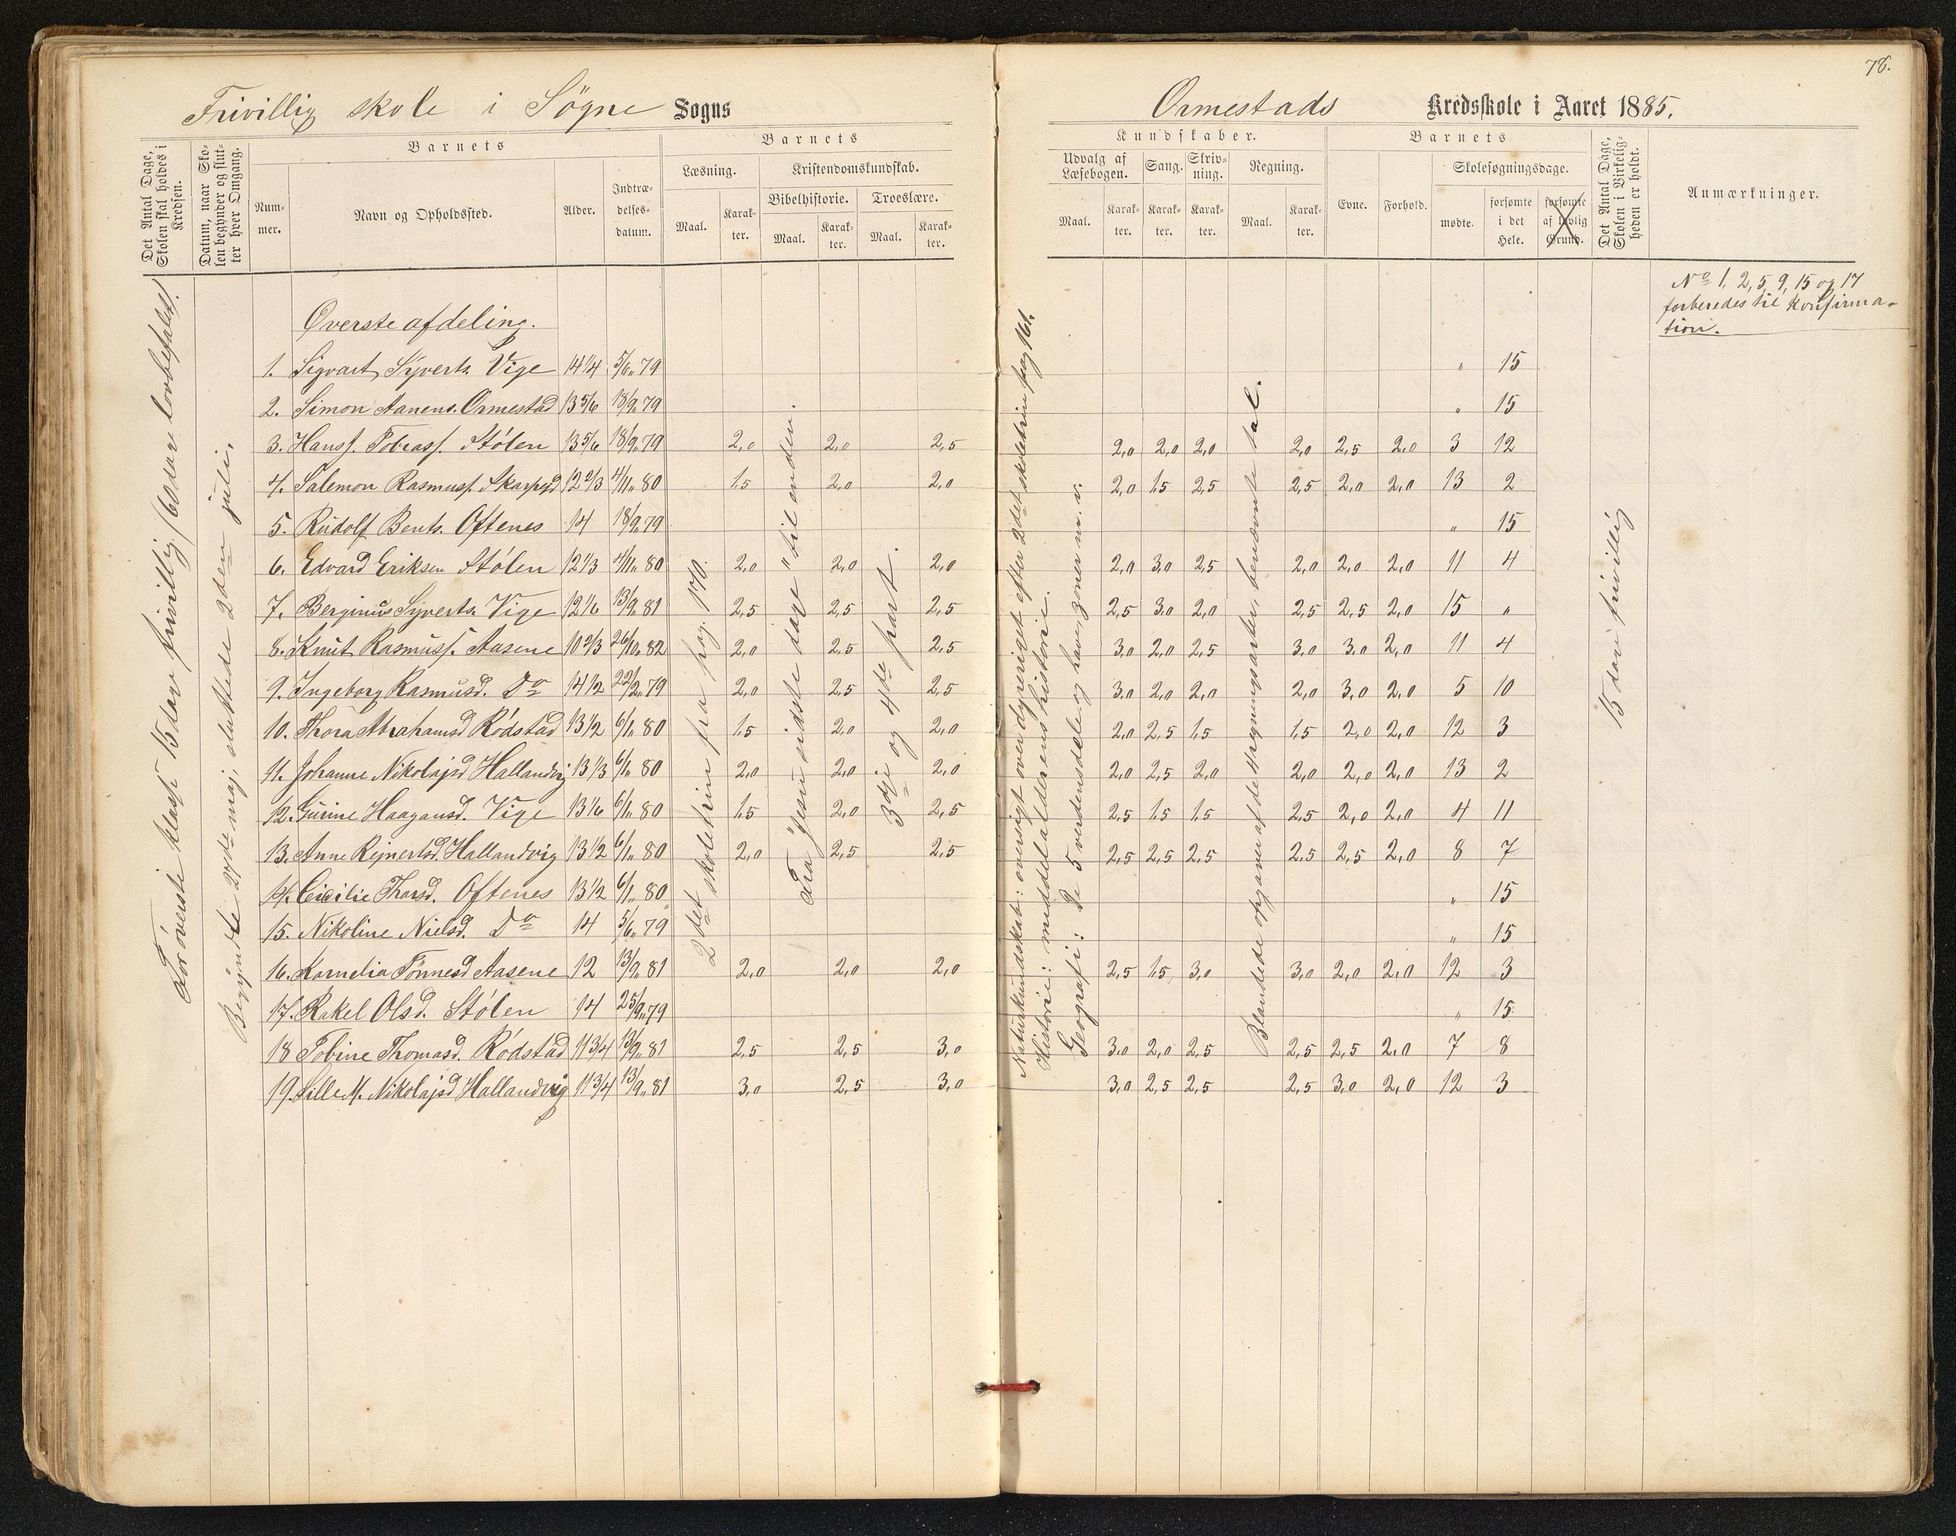 78.
Frivillig skole i Søgne Sogns
Ormestads Kredsskole i Aaret 1885.
Det Antal Dage, Skolen skal holdes i Kredsen.
Datum, naar Skolen begynder og slutter hver Omgang.
Barnets
Nummer.
Navn og Opholdssted.
Alder.
Indtrædelsesdatum.
Barnets
Læsning.
Kristendomskundskab.
Bibelhistorie.
Troeslære.
Maal.
Karakter.
Maal.
Karakter.
Maal.
Karakter.
Kundskaber.
Udvalg af Læsebogen.
Sang.
Skrivning.
Regning.
Maal.
Karakter.
Karakter.
Karakter.
Maal.
Karakter.
Barnets
Evne.
Forhold.
Skolesøgningsdage.
mødte.
forsømte i det Hele.
forsømte af lovlig Grund.
Det Antal Dage, Skolen i Virkeligheden er holdt.
Anmærkninger.
No 1, 2, 5, 9, 15 og 17
forberedes til Konfirma-
tion.
For øverste klasse 15 dar frivillig (60 dar lovbefalet).
Begyndte 27de maj, sluttede 2den juli.
2det skoletrin fra pag. 170.
Fra "Jesu sidste dage" til enden.
3dje og 4de part.
Naturkundskab: oversigt over dyreriget efter 2det skoletrin pag 161.
Historie: middelalderens historie.
Geografi: De 5 verdensdele og have zoner m. v.
Blandede opgaver af de 4 regningsarter, benævnte tal.
15 dar frivillig
Øverste afdeling.
1. Sigvart Syverts. Vige 14 1/4 5/6 79 " 15
2. Simon Aanens. Ormestad 13 5/6 18/9 79 " 15
3. Hans J. Tobiass. Stølen 13 5/6 18/9 79 2,0 2,0 2,5 2,0 2,0 2,0 2,0 2,5 2,0 3 12
4. Salemon Rasmuss. Skarpejd 12 2/3 4/11 80 1,5 2,0 2,0 2,0 1,5 2,5 2,5 2,0 2,0 13 2
5. Rudolf Bents. Oftenes 14 18/9 79 " 15
6. Edvard Eriksen Stølen 12 1/3 4/11 80 2,0 2,0 2,0 2,0 3,0 2,5 2,0 2,0 2,0 11 4
7. Berginus Syverts. Vige 12 1/6 13/9 81 2,5 2,5 2,5 2,5 3,0 2,0 2,5 2,5 2,0 15 "
8. Knut Rasmuss. Aasene 10 2/3 26/10 82 2,0 2,5 2,5 3,0 2,0 2,5 3,0 3,0 2,0 11 4
9. Ingeborg Rasmusd. Do 14 1/2 22/2 79 2,0 2,5 2,5 3,0 2,0 2,0 2,0 3,0 2,0 5 10
10. Thora Abrahamsd Rødstad 13 1/2 6/1 80 1,5 2,0 2,0 2,0 2,5 1,5 1,5 2,0 2,0 12 3
11. Johanne Nikolajsd Hallandvig 13 1/3 6/1 80 2,0 2,0 2,0 2,0 2,5 2,0 2,0 2,0 2,0 13 2
12. Gurine Haagansd. Vige 13 1/6 6/1 80 1,5 2,0 2,5 2,5 1,5 1,5 2,5 2,0 2,0 4 11
13. Anne Rejnertsd. Hallandvig 13 1/2 6/1 80 2,0 2,5 2,5 2,5 2,5 2,5 2,5 2,5 2,0 8 7
14. Cicilie Thorsd. Oftenes 13 1/2 6/1 80 " 15
15. Nikoline Nielsd. Do 14 5/6 79 " 15
16. Kornelia Tønnesd Aasene 12 13/9 81 2,0 2,0 2,0 2,5 1,5 3,0 3,0 2,0 2,0 12 3
17. Rakel Olsd. Stølen 14 25/9 79 " 15
18 Tobine Thomasd. Rødstad 11 3/4 13/9 81 2,5 2,5 3,0 3,0 2,0 2,5 2,5 2,5 2,0 7 8
19. Sille M. Nikolajsd Hallandvig 11 3/4 13/9 81 3,0 2,5 3,0 3,0 2,5 2,5 2,5 3,0 2,0 12 3